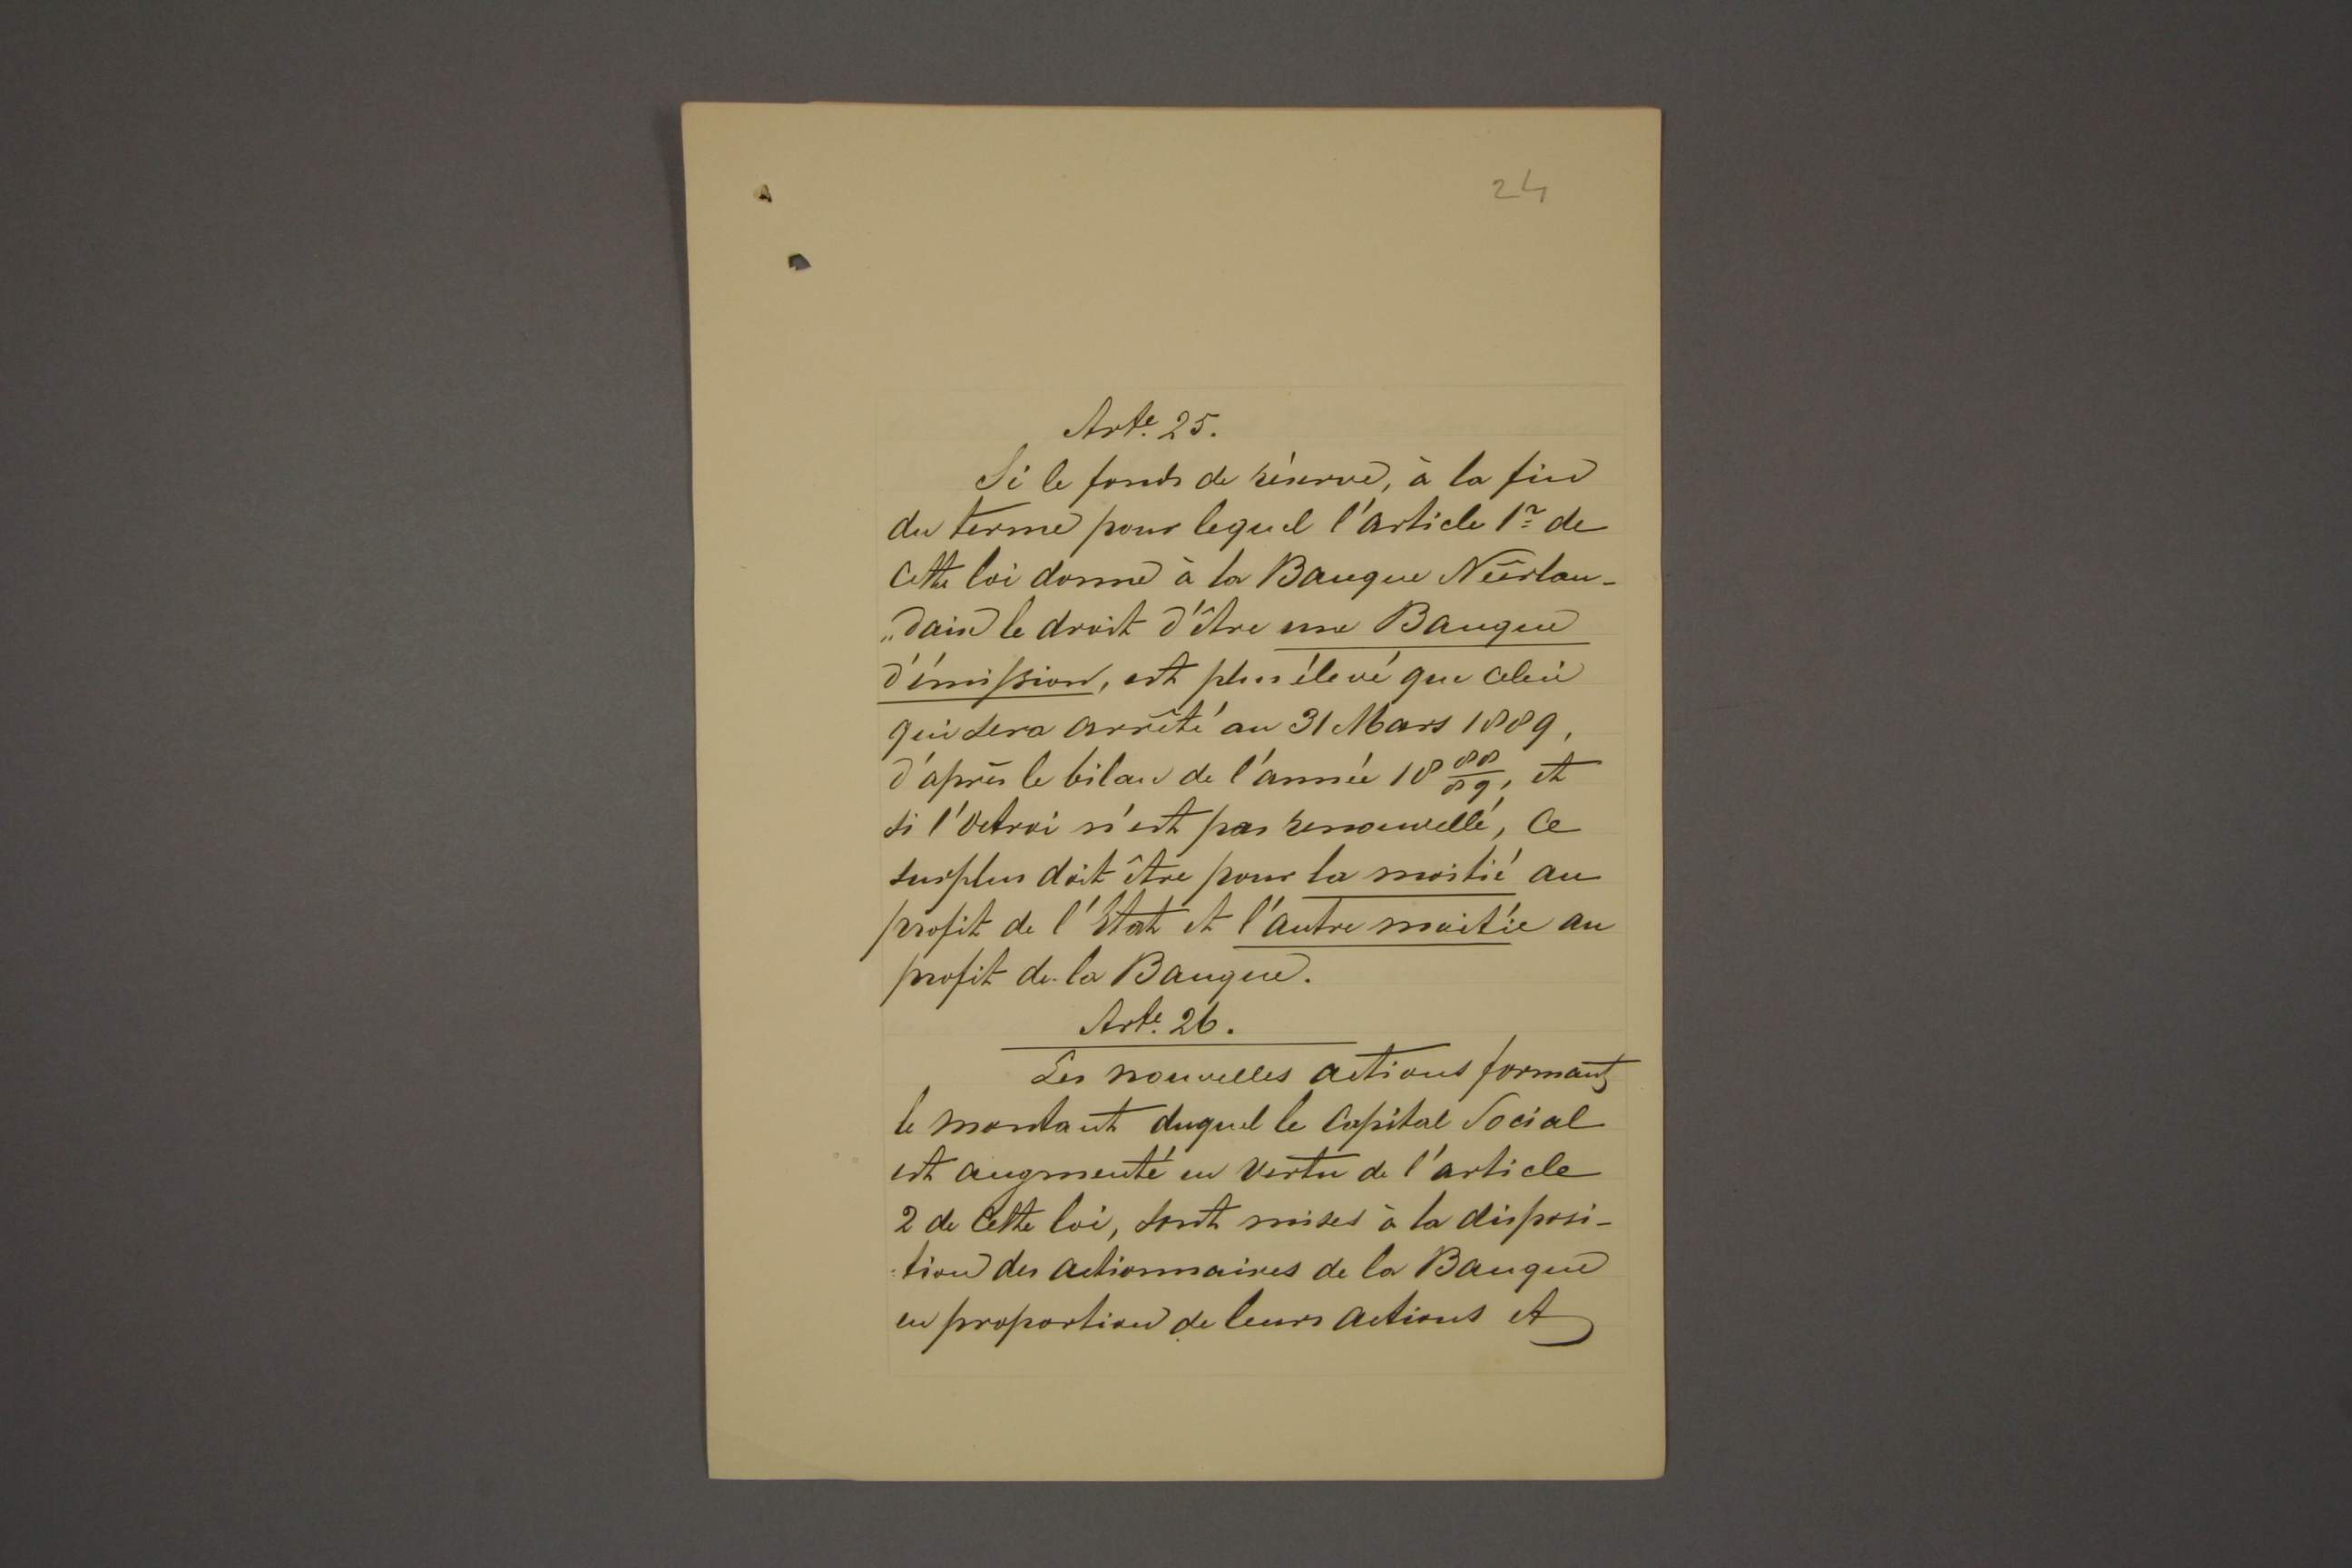 24
Arte. 25.
Si le fonds de réserve, à la fin
du terme pour lequel l'article 1r de
cette loi donne à la Banque Néerlan-
„daise le droit d'être une Banque
d'émission, est plus élevé que celui
qui sera arrêté au 31 Mars 1889,
d'après le bilan de l'année 18 88/89, et
si l'octroi n'est pas renouvellé, ce
surplus doit être pour la moitié au
profit de l'Etat et l'autre moitiée au
profit de la Banque.
Arte. 26.
Les nouvelles actions formant
le montant duquel le Capital Social
est augmenté en vertu de l'article
2 de cette loi, sont mises à la disposi-
-tion des actionnaires de la Banque
en proportion de leurs actions et